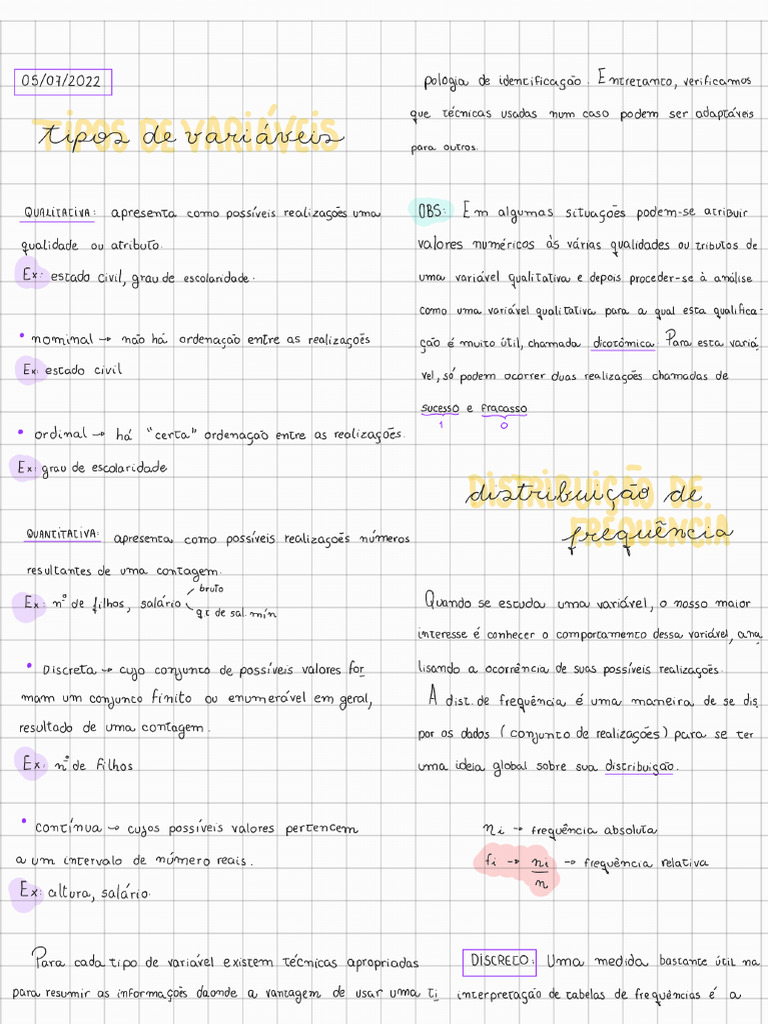 05/07/2022
tipos de variáveis
QUALITATIVA: apresenta como possíveis realizações uma
qualidade ou atributo.
Ex: estado civil, grau de escolaridade.
• nominal → não há ordenação entre as realizações
Ex: estado civil
• ordinal → há "certa" ordenação entre as realizações.
Ex: grau de escolaridade
QUANTITATIVA: apresenta como possíveis realizações números
resultantes de uma contagem.
Ex: nº de filhos, salário
bruto
qt de sal. mín
• Discreta → cujo conjunto de possíveis valores for
mam um conjunto finito ou enumerável em geral,
resultado de uma contagem.
Ex: nº de filhos
• contínua → cujos possíveis valores pertencem
a um intervalo de número reais.
Ex: altura, salário.
Para cada tipo de variável existem técnicas apropriadas
para resumir as informações daonde a vantagem de usar uma ti
pologia de identificação. Entretanto, verificamos
que técnicas usadas num caso podem ser adaptáveis
para outros.
OBS: Em algumas situações podem-se atribuir
valores numéricos às várias qualidades ou tributos de
uma variável qualitativa e depois proceder-se à análise
como uma variável qualitativa para a qual esta qualifica-
ção é muito útil, chamada dicotômica. Para esta variá
vel, só podem ocorrer duas realizações chamadas de
sucesso e fracasso
1 0
distribuição de
frequência
Quando se estuda uma variável, o nosso maior
interesse é conhecer o comportamento dessa variável, ana
lisando a ocorrência de suas possíveis realizações.
A dist. de frequência é uma maneira de se dis
por os dados (conjunto de realizações) para se ter
uma ideia global sobre sua distribuição.
ni → frequência absoluta
fi → ni/n → frequência relativa
DISCRETO: Uma medida bastante útil na
interpretação de tabelas de frequências é a